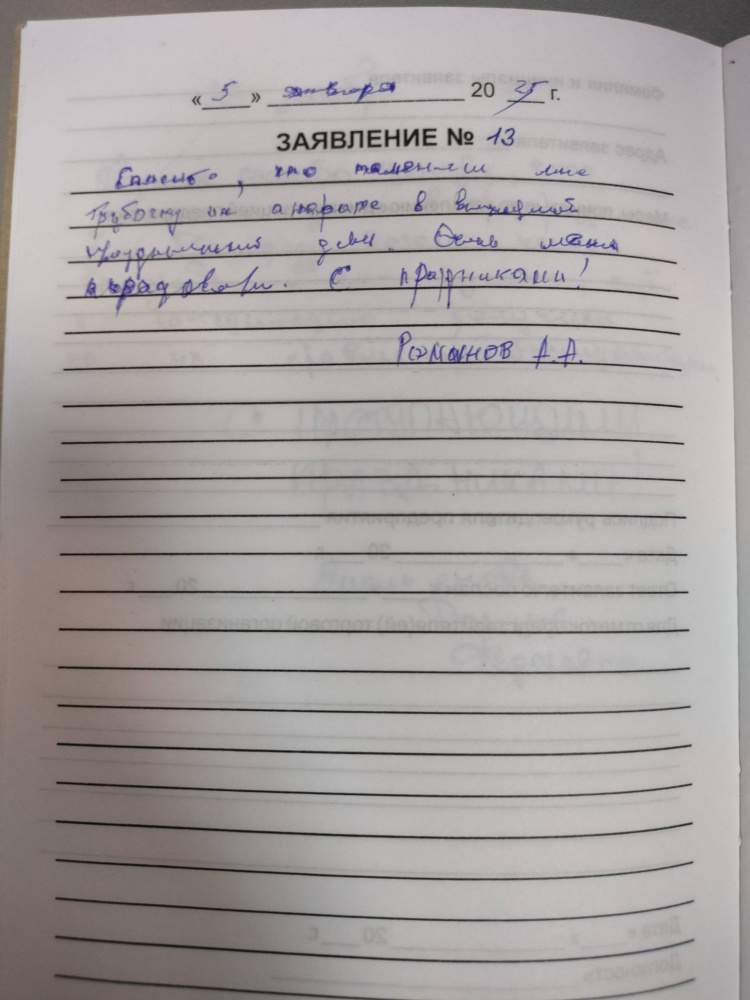 « 5 » января 20 25 г.
ЗАЯВЛЕНИЕ № 13
Спасибо, что поменяли мне
трубочку на аппарате в выходной
праздничный день. Очень меня
порадовали. С праздниками!
Романов А.А.